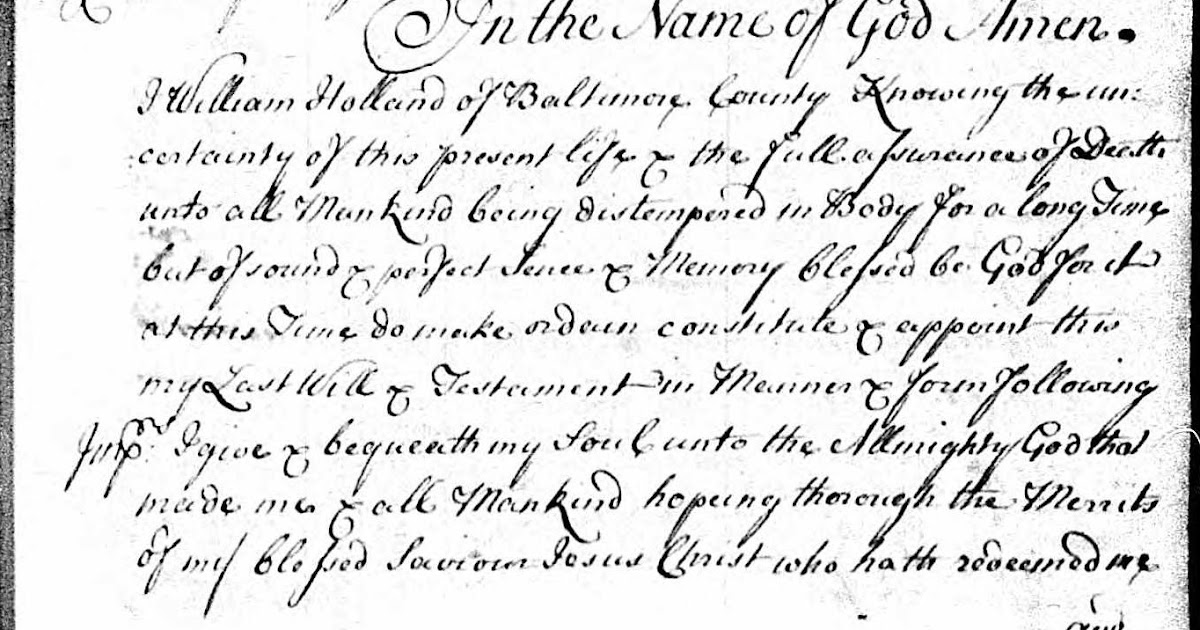 In the Name of God Amen.
I William Holland of Baltimore County Knowing the un:
certainty of this present life & the full assurance of Death
unto all Mankind being distempered in Body for a long Time
but of sound & perfect Sence & Memory blessed be God for it
at this Time do make ordain constitute & appoint this
my Last Will & Testament in Manner & form following
Imprs. I give & bequeath my Soul unto the Allmighty God that
made me & all Mankind hopeing thorough the Merrits
of my blessed Saviour Jesus Christ who hath redeemed me